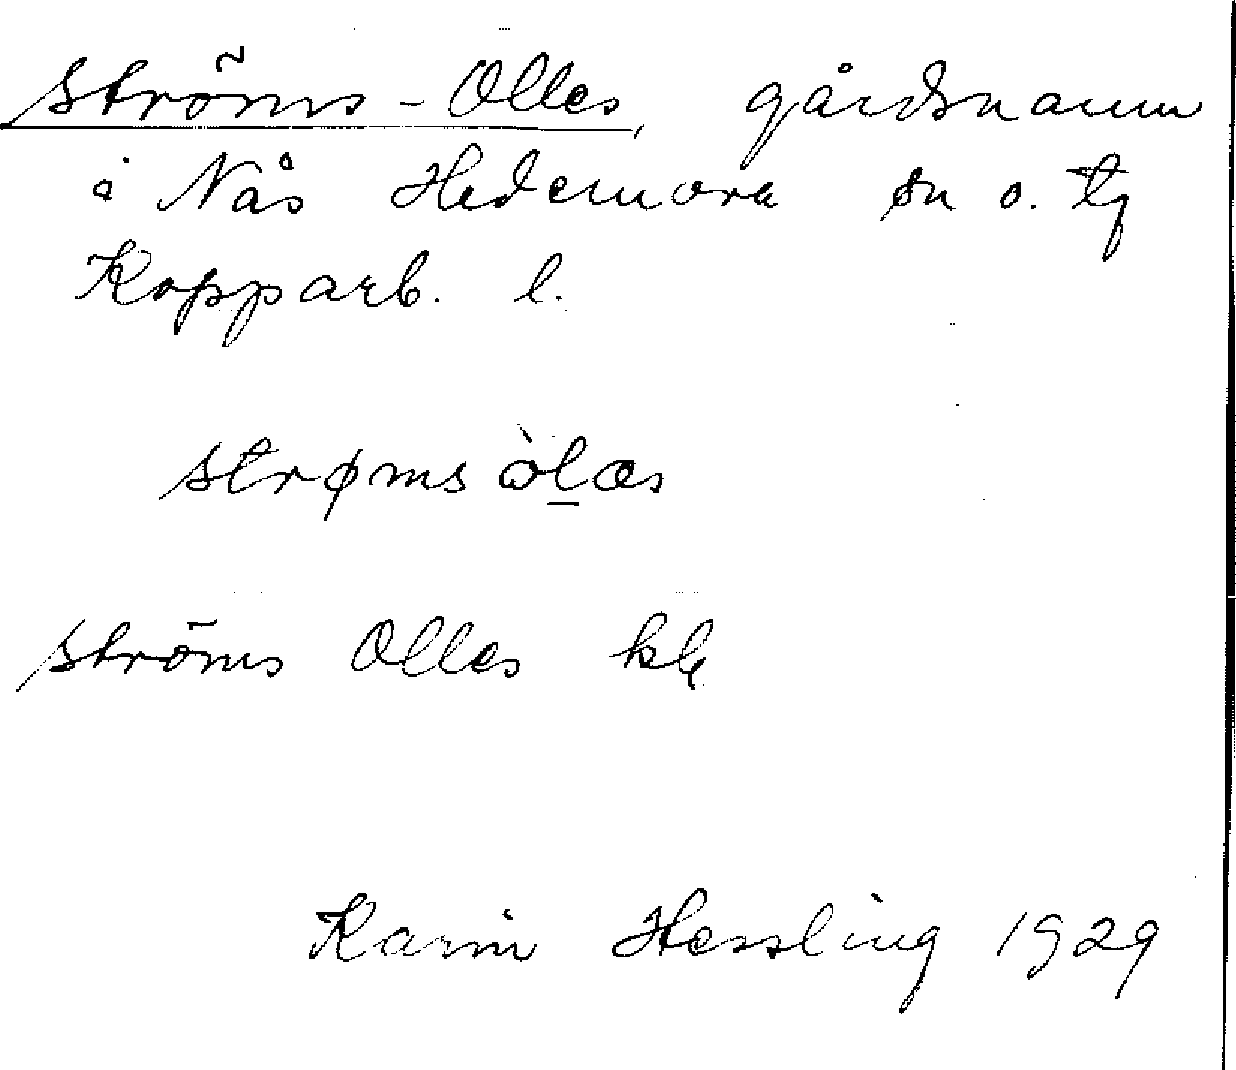 Ströms-Olles, gårdsnamn
i Nås Hedemora sn o. tg
Kopparb. l.
strøms òlas
Ströms Olles
Karin Hessling 1929